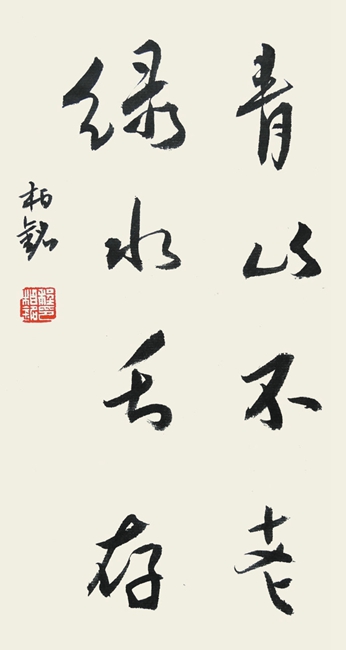 青山不老
绿水长存
柏铭